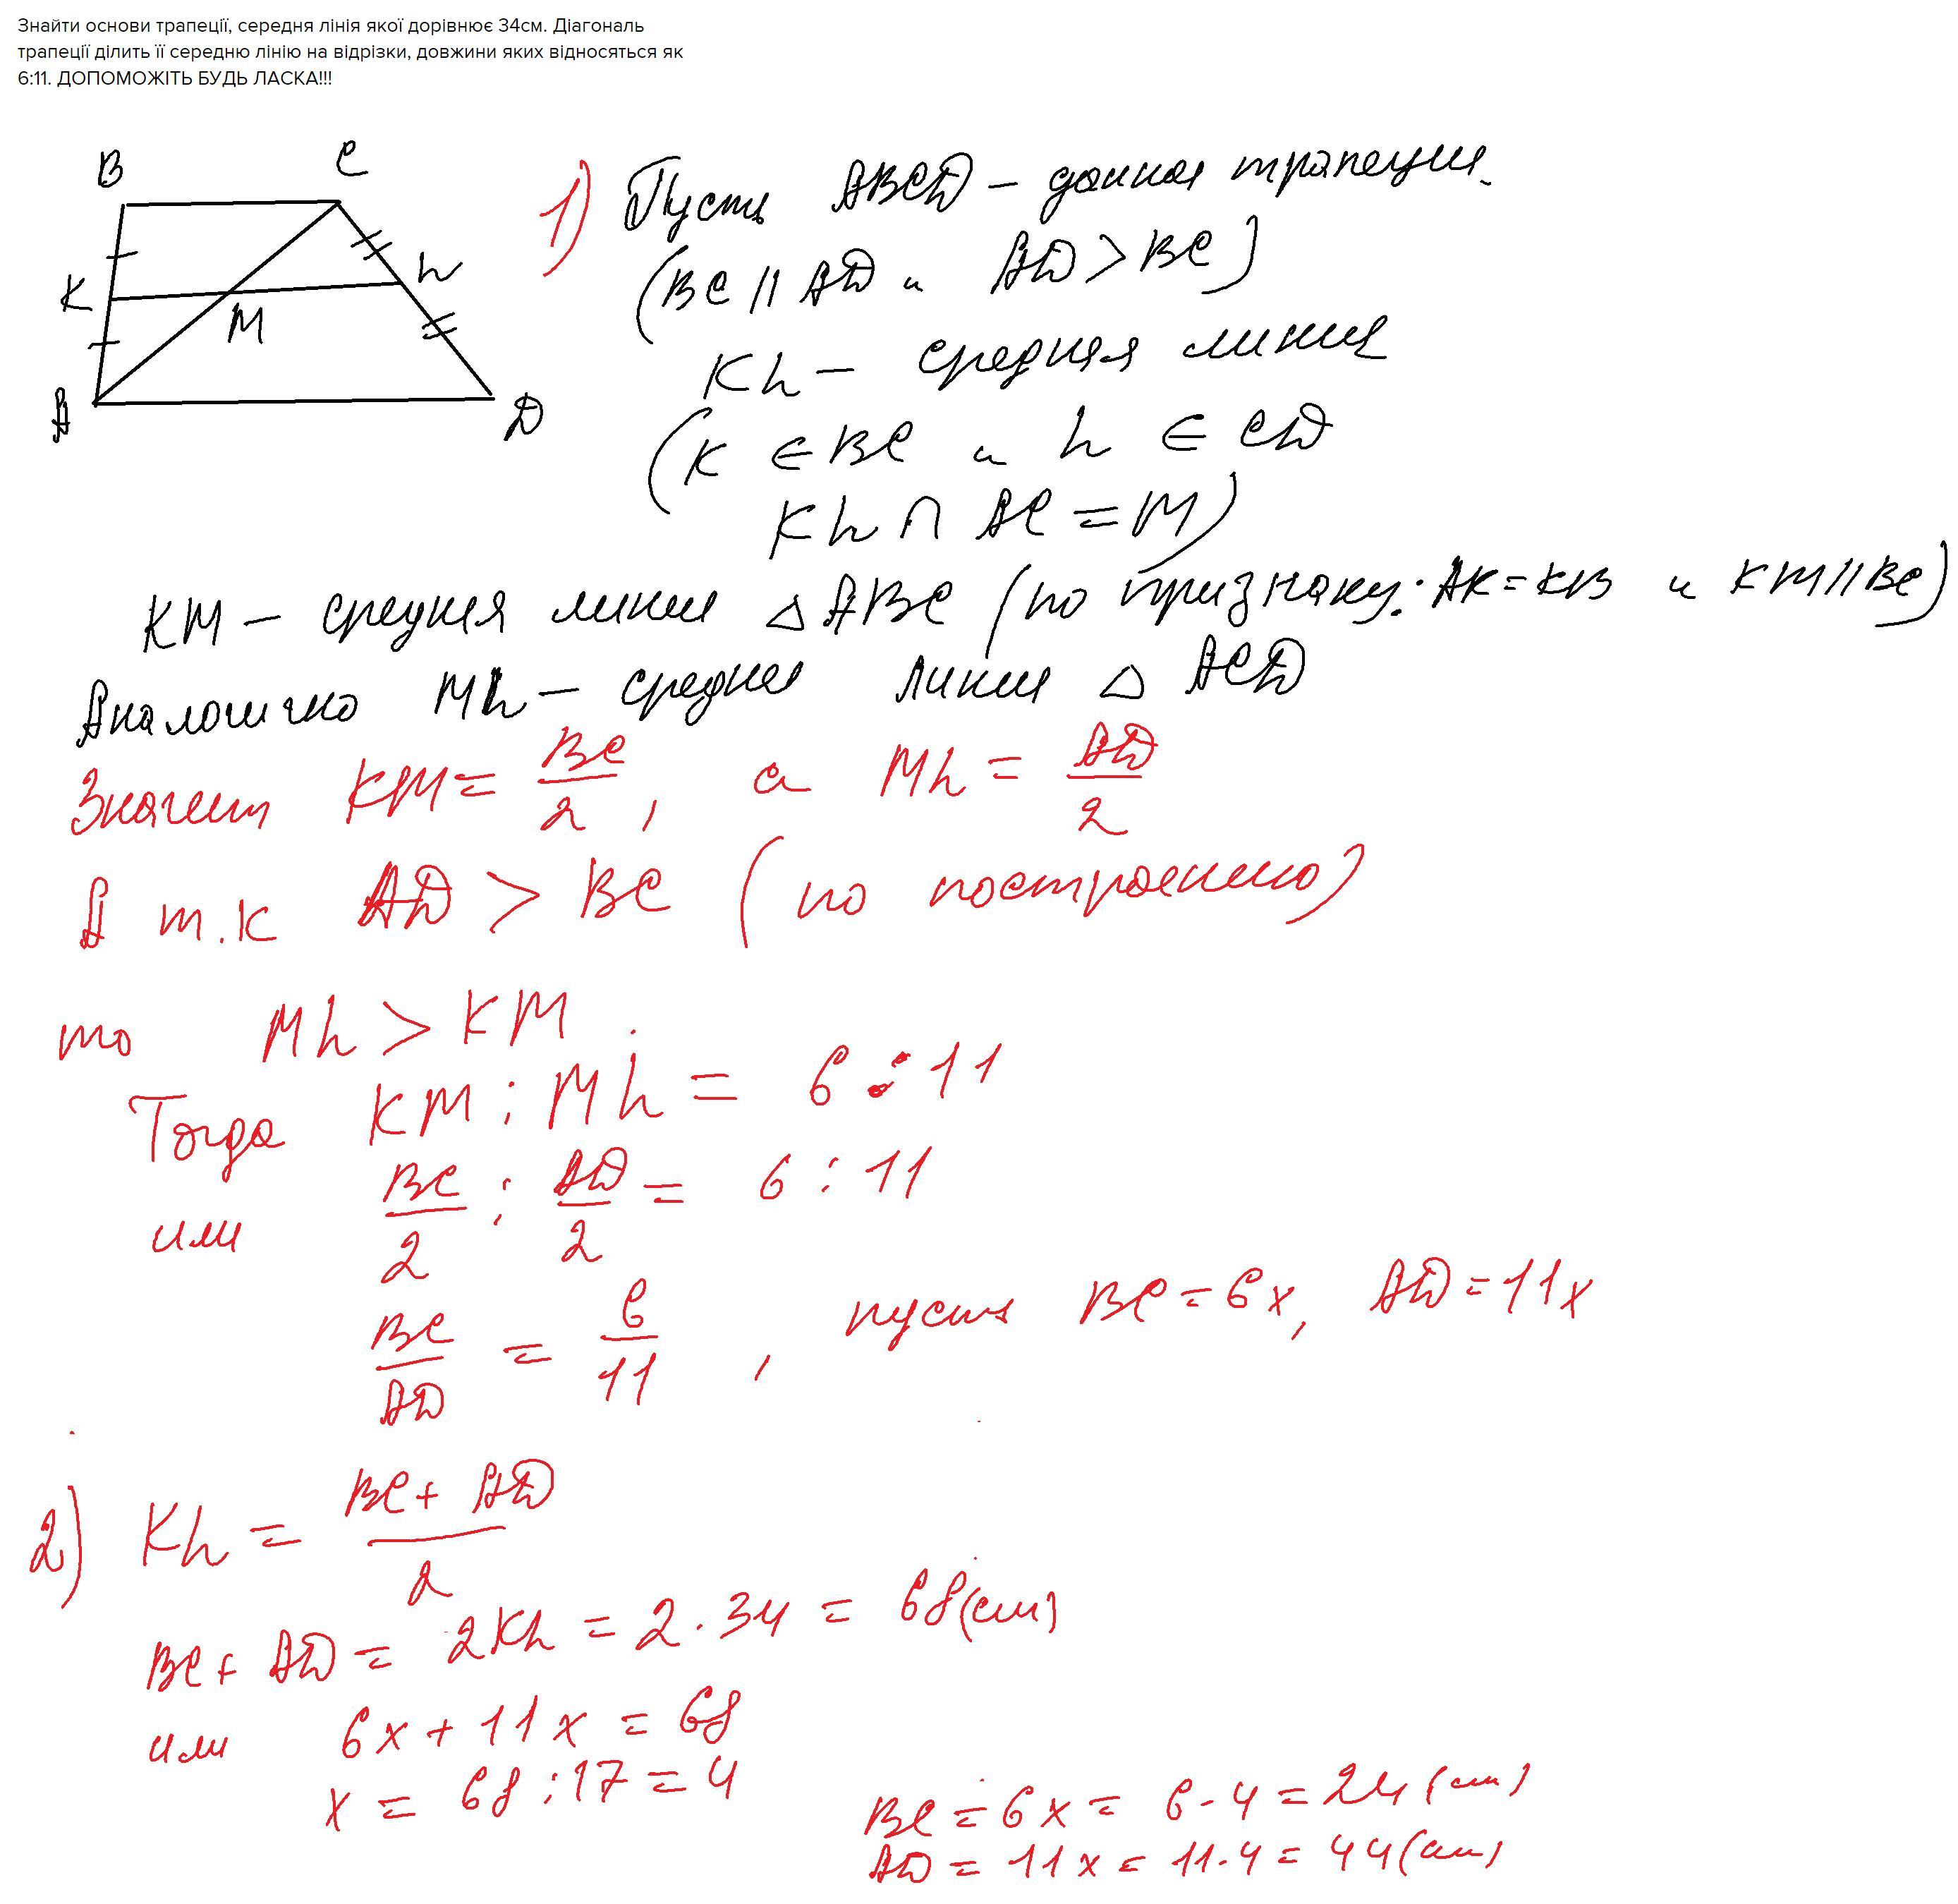 Знайти основи трапеції, середня лінія якої дорівнює 34см. Діагональ
трапеції ділить її середню лінію на відрізки, довжини яких відносяться як
6:11. ДОПОМОЖІТЬ БУДЬ ЛАСКА!!!
B C
K h
M
A D
1) Пусть ABCD – данная трапеция.
(BC || AD и AD > BC)
Kh – средняя линия
(K ∈ BC и h ∈ CD
Kh ∩ AC = M)
KM – средняя линия △ ABC (по признаку: AK = KB и KM || BC)
Аналогично Mh – средняя линия △ ACD
Значит KM = BC/2, а Mh = AD/2
А т.к AD > BC (по построению)
то Mh > KM
Тогда KM : Mh = 6 : 11
или BC/2 : AD/2 = 6 : 11
BC/AD = 6/11, пусть BC = 6x, AD = 11x
2) Kh = BC + AD / 2
BC + AD = 2Kh = 2 · 34 = 68 (см)
или 6x + 11x = 68
x = 68 : 17 = 4
BC = 6x = 6 · 4 = 24 (см)
AD = 11x = 11 · 4 = 44 (см)